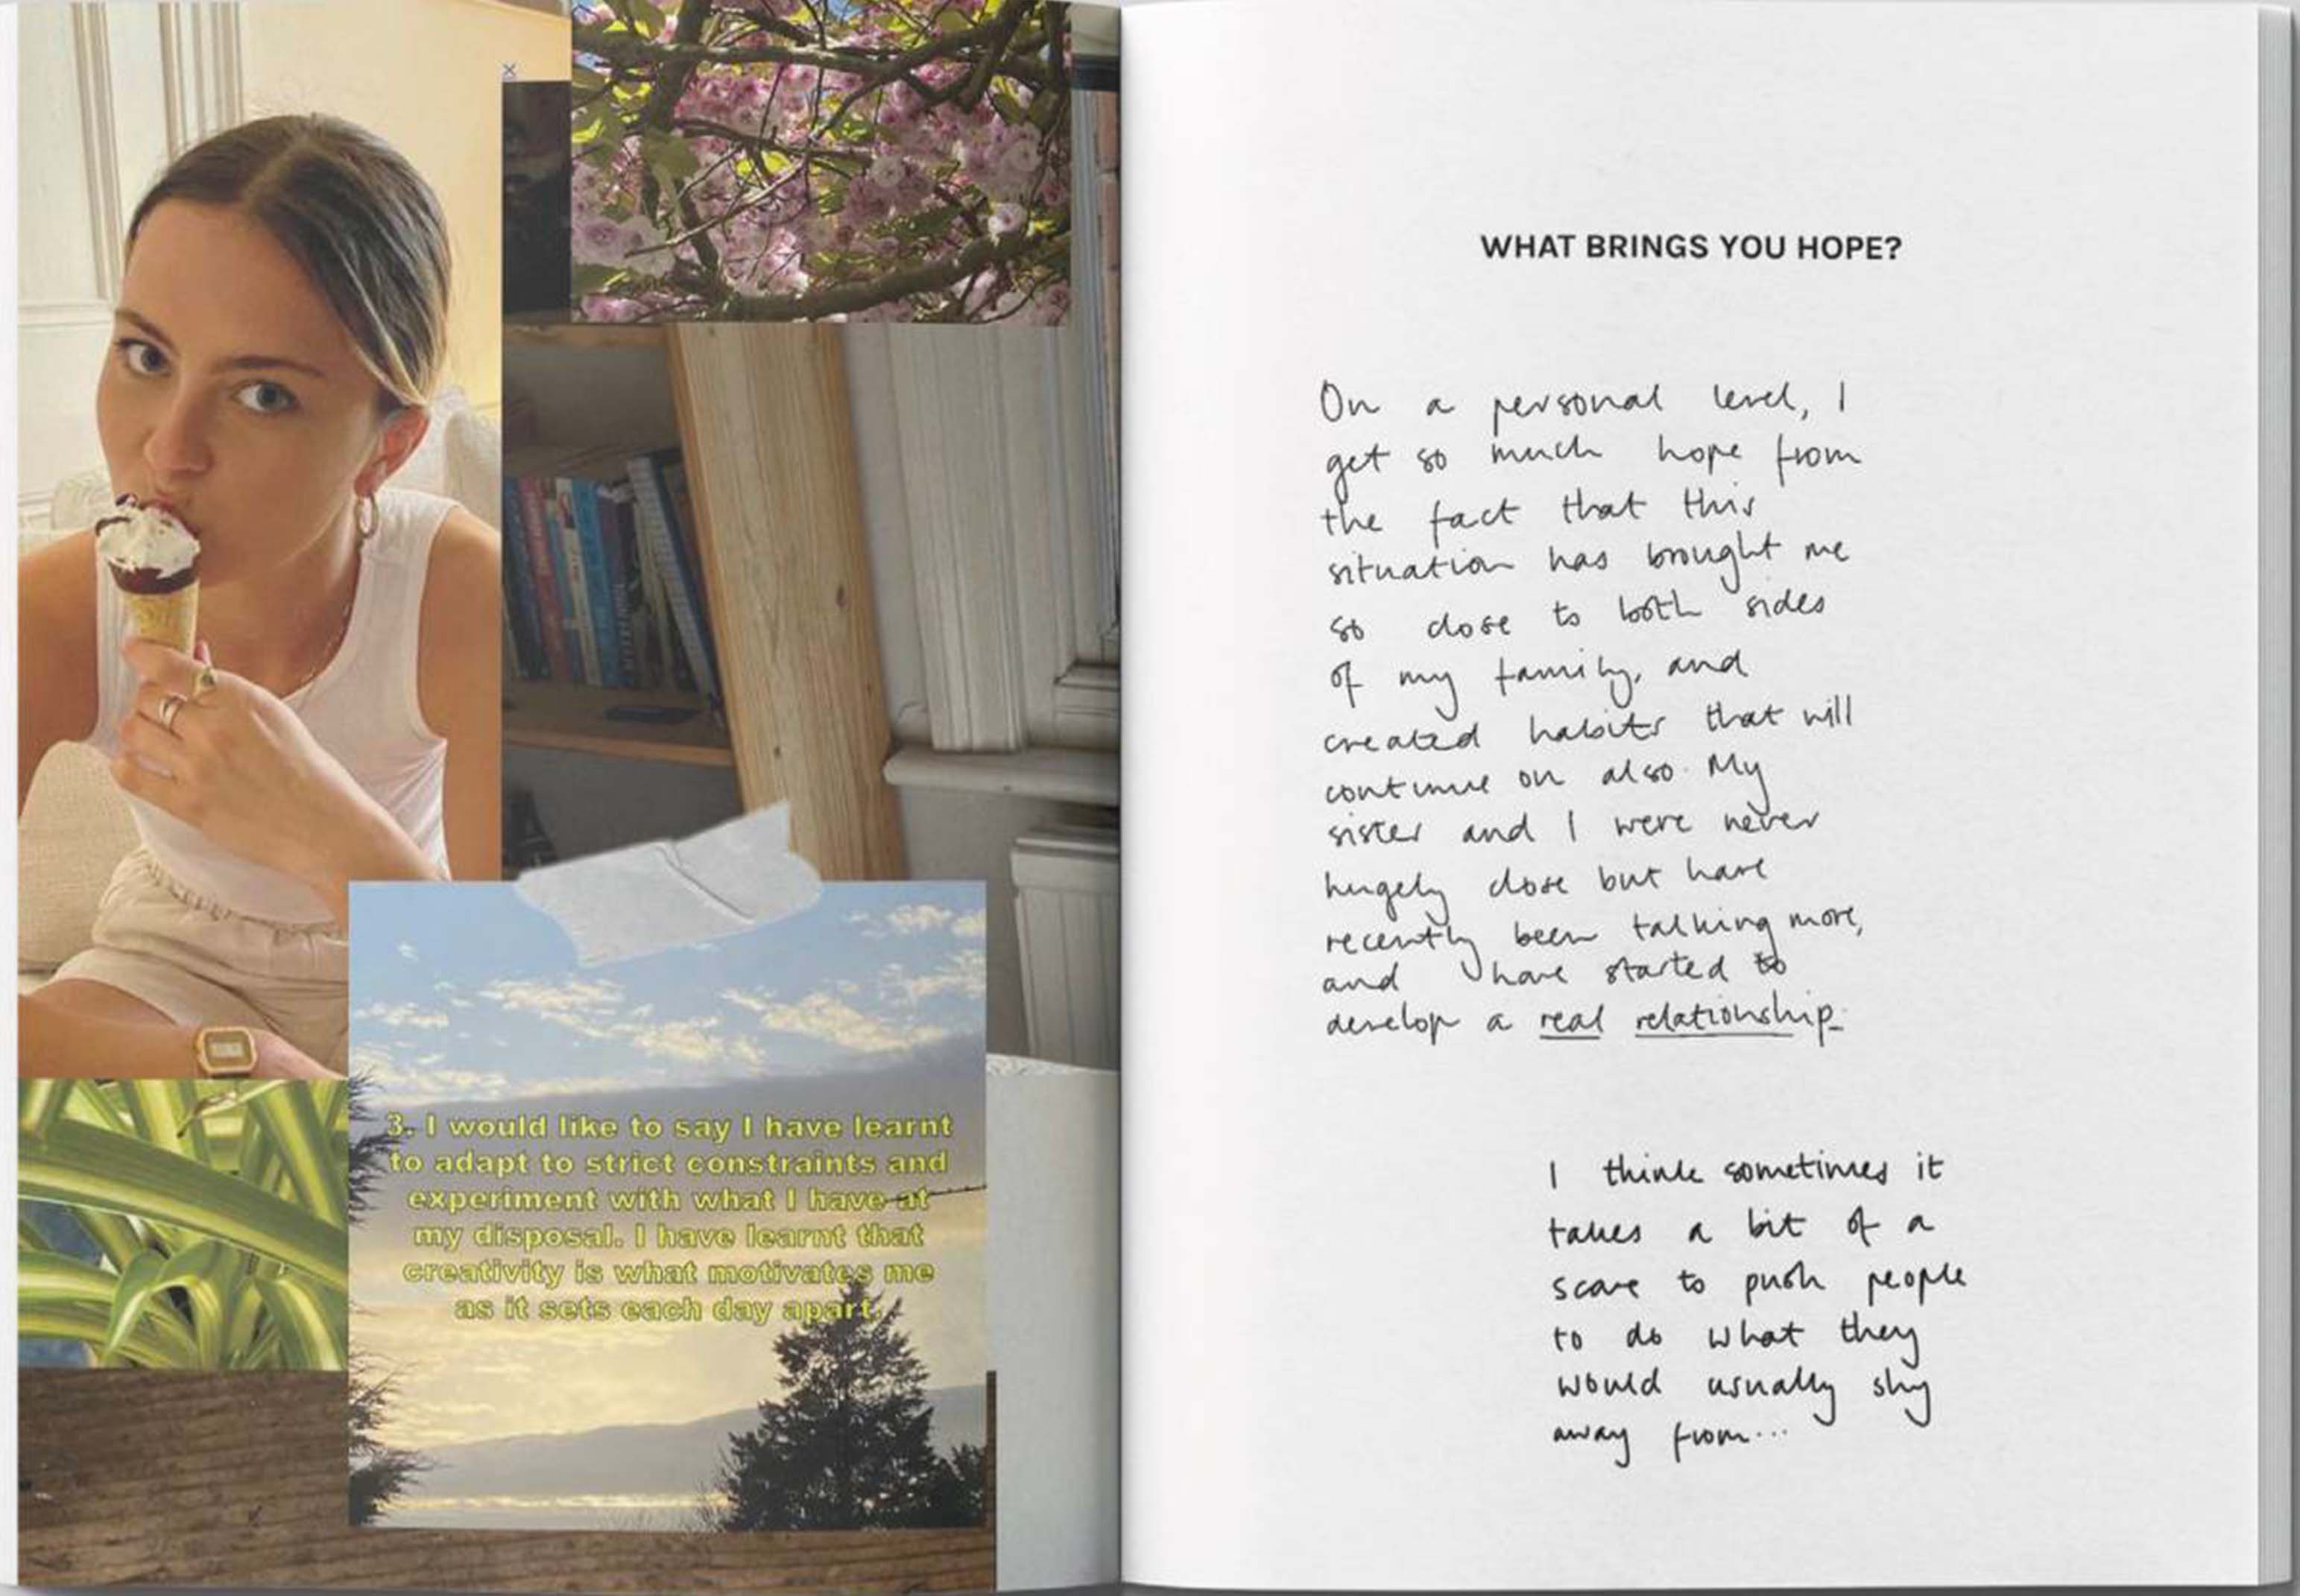 3. I would like to say I have learnt
to adapt to strict constraints and
experiment with what I have at
my disposal. I have learnt that
creativity is what motivates me
as it sets each day apart.
WHAT BRINGS YOU HOPE?
On a personal level, I
get so much hope from
the fact that this
situation has brought me
so close to both sides
of my family, and
created habits that will
continue on also. My
sister and I were never
hugely close but have
recently been talking more,
and have started to
develop a real relationship.
I think sometimes it
takes a bit of a
scare to push people
to do what they
would usually shy
away from...